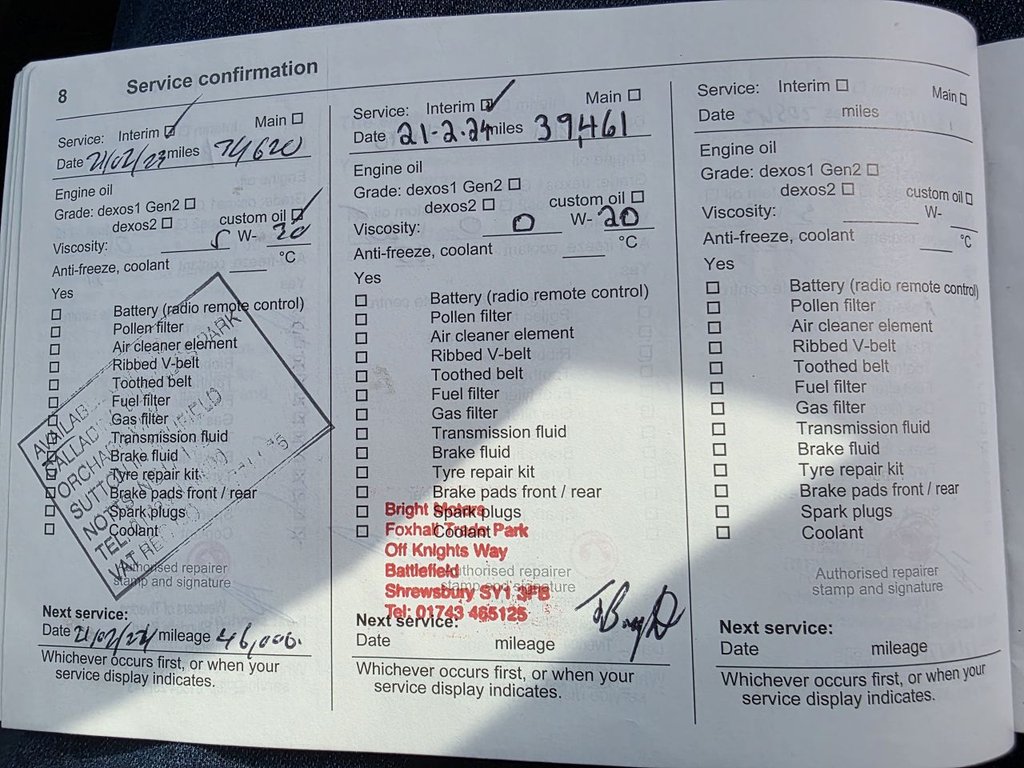 8 Service confirmation
Service: Interim ☑ Main ☐
Date 21/02/23 miles
Engine oil
Grade: dexos1 Gen2 ☐
dexos2 ☐ custom oil ☑
Viscosity: 5 W- 20
Anti-freeze, coolant ____ °C
Yes
☐ Battery (radio remote control)
☐ Pollen filter
☐ Air cleaner element
☐ Ribbed V-belt
☐ Toothed belt
☐ Fuel filter
☐ Gas filter
☐ Transmission fluid
☐ Brake fluid
☐ Tyre repair kit
☐ Brake pads front / rear
☐ Spark plugs
☐ Coolant
PARK
ORCHA
SUTTON
NOTTS
TEL
VAT RE
Authorised repairer
stamp and signature
Next service:
Date 21/02/24 mileage 46,000.
Whichever occurs first, or when your
service display indicates.
Service: Interim ☑ Main ☐
Date 21-2-24 miles 39461
Engine oil
Grade: dexos1 Gen2 ☐
dexos2 ☐ custom oil ☐
Viscosity: 0 W- 20
Anti-freeze, coolant ____ °C
Yes
☐ Battery (radio remote control)
☐ Pollen filter
☐ Air cleaner element
☐ Ribbed V-belt
☐ Toothed belt
☐ Fuel filter
☐ Gas filter
☐ Transmission fluid
☐ Brake fluid
☐ Tyre repair kit
☐ Brake pads front / rear
☐ Spark plugs
☐ Coolant
Bright Motors
Foxhall Trade Park
Off Knights Way
Battlefield
Shrewsbury SY1 3FB
Tel: 01743 465125
Authorised repairer
stamp and signature
Next service:
Date mileage
Whichever occurs first, or when your
service display indicates.
Service: Interim ☐ Main ☐
Date miles
Engine oil
Grade: dexos1 Gen2 ☐
dexos2 ☐ custom oil ☐
Viscosity: ____ W- ____
Anti-freeze, coolant °C
Yes
☐ Battery (radio remote control)
☐ Pollen filter
☐ Air cleaner element
☐ Ribbed V-belt
☐ Toothed belt
☐ Fuel filter
☐ Gas filter
☐ Transmission fluid
☐ Brake fluid
☐ Tyre repair kit
☐ Brake pads front / rear
☐ Spark plugs
☐ Coolant
Authorised repairer
stamp and signature
Next service:
Date mileage
Whichever occurs first, or when your
service display indicates.